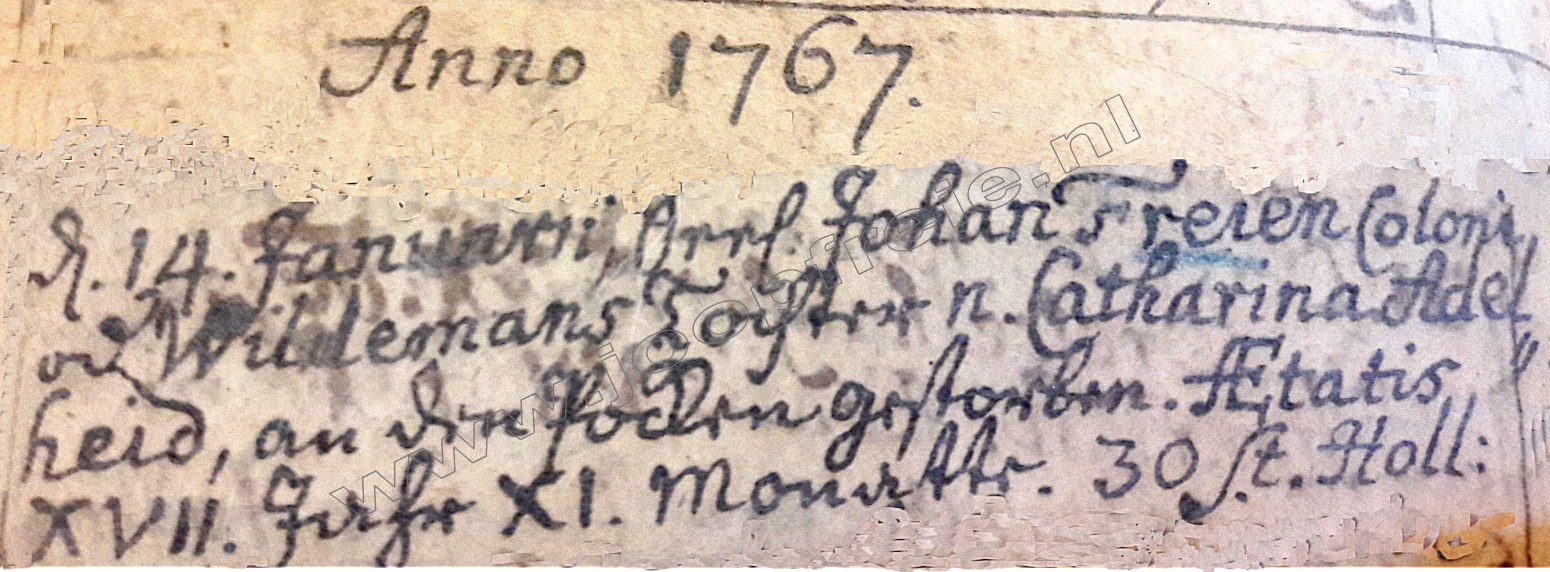 Anno 1767.
d. 14. Januarii, Seel. Johan Freien Coloni
Wildemans Tochter n. Catharina Adel„
heid, an den Pocken gestorben. Ætatis
XVII. Jahr XI. Monatte. 30 st. Holl:
www.jcobfreie.nl